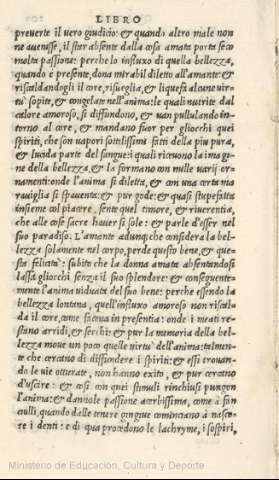 LIBRO
preuerte il uero giudicio: & quando altro male non
ne auenisse, il star absente dalla cosa amata porta seco
molta passione: perche lo influxo di quella bellezza,
quando è presente, dona mirabil diletto all'amante: &
riscaldandogli il core, risueglia, & liquefa alcune uir-
tù sopite, & congelate nell'anima: le quali nutrite dal
calore amoroso, si diffundono, & uan pullulando in-
torno al core, & mandano fuor per gliocchi quei
spiriti, che son uapori sottilissimi fatti della piu pura,
& lucida parte del sangue: i quali riceuono la imagi-
ne della bellezza, & la formano con mille uarij or-
namenti: onde l'anima si diletta, & con una certa ma-
rauiglia si spauenta: & pur gode: & quasi stupefatta
insieme col piacere, sente quel timore, & riuerentia,
che alle cose sacre hauer si sole: & parle d'esser nel
suo paradiso. L'amante adunque che considera la bel-
lezza solamente nel corpo, perde questo bene, & que-
sta felicità: subito che la donna amata absentandosi
lassa gliocchi senza il suo splendore: & conseguente-
mente l'anima uiduata del suo bene: perche essendo la
bellezza lontana, quell'influxo amoroso non riscal-
da il core, come faceua in presentia: onde i meati re-
stano arridi, & secchi: & pur la memoria della bel-
lezza moue un poco quelle uirtù dell'anima: talmen-
te che cercano di diffondere i spiriti: & essi trouan-
do le uie otturate, non hanno exito, & pur cercano
d'uscire: & cosi con quei stimuli rinchiusi pungon
l'anima: & dannole passione acerbissima, come à fan
ciulli, quando dalle tenere gengiue cominciano à nasce-
re i denti: e di qua procedono le lachryme, i sospiri,
Ministerio de Educación, Cultura y Deporte